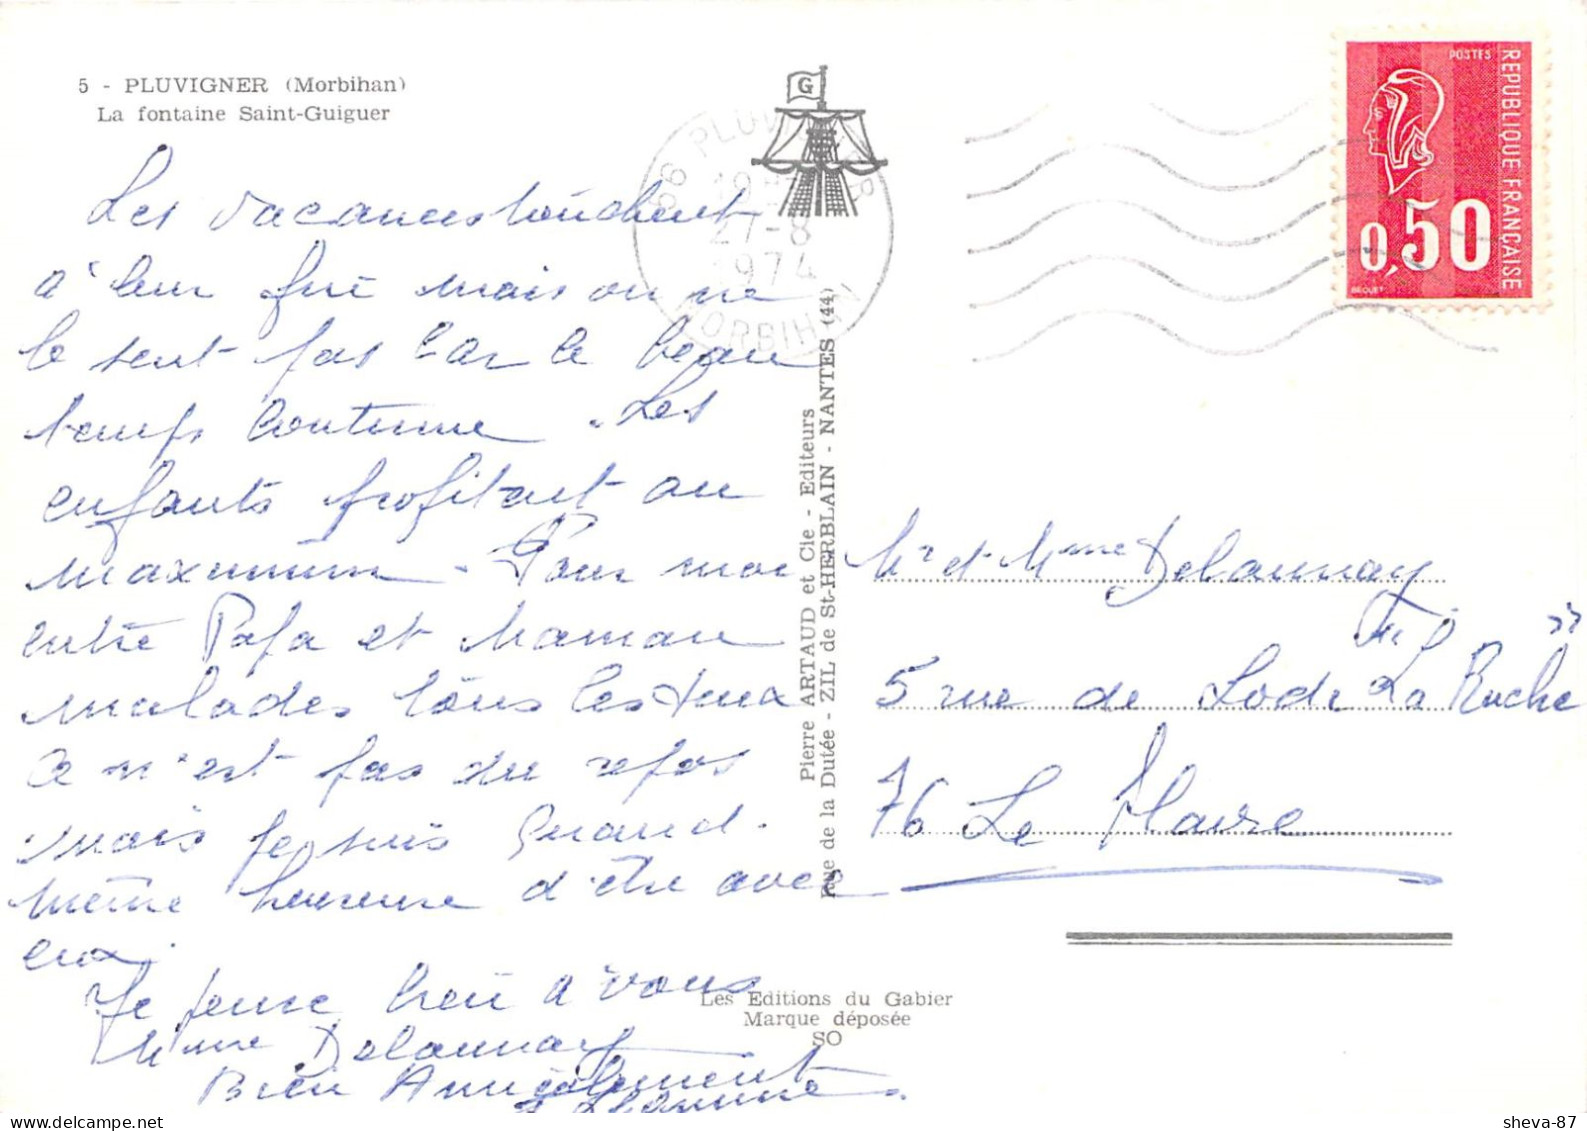 5 - PLUVIGNER (Morbihan)
La fontaine Saint-Guiguer
Les vacances touchent
à leur fin mais on ne
le sent pas car le beau
temps continue. Les
enfants profitent au
maximum. Pour moi
entre Papa et Maman
malades tous les deux
ce n'est pas du repos
mais je suis quand.
même heureuse d'être avec
eux.
Je pense bien à vous
Mme Delaunay
Bien Amicalement
G
66 PLUVIGNER
27-8
1974
MORBIHAN
Pierre ARTAUD et Cie - Editeurs
Rue de la Dutée - ZIL de St-HERBLAIN - NANTES (44)
REPUBLIQUE FRANÇAISE
POSTES
0,50
BEQUET
Mr et Mme Delaunay
5 rue de Lodi La Ruche "
76 Le Havre
Les Editions du Gabier
Marque déposée
SO
sheva-87